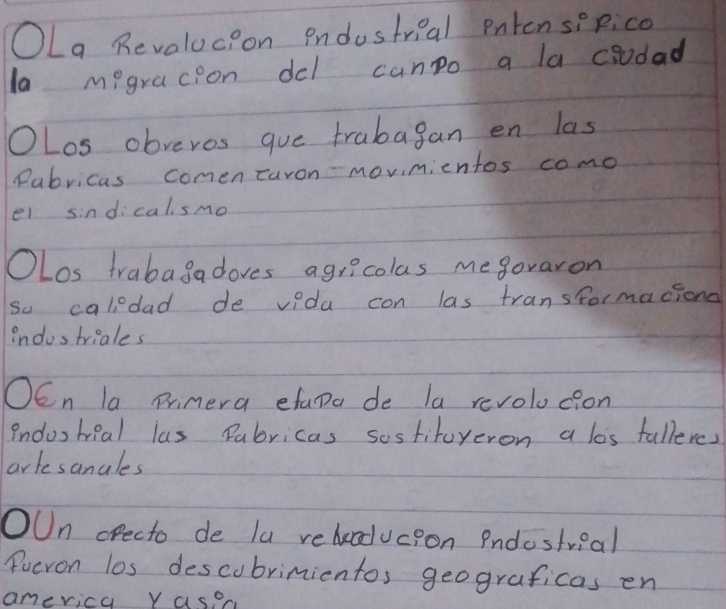 OLa Revolucion industrial intensifico
la migracion del canpo a la ciudad
OLos obreros que trabajan en las
fabricas comenzaron movimientos como
el sindicalismo
OLos trabajadores agricolas mejoraron
su calidad de vida con las transformacione
industriales
OEn la primera etapa de la revolucion
industrial las fabricas sustituyeron a los talleres
artesanales
OUn efecto de la industrial
fueron los descubrimientos geograficas en
america y asia